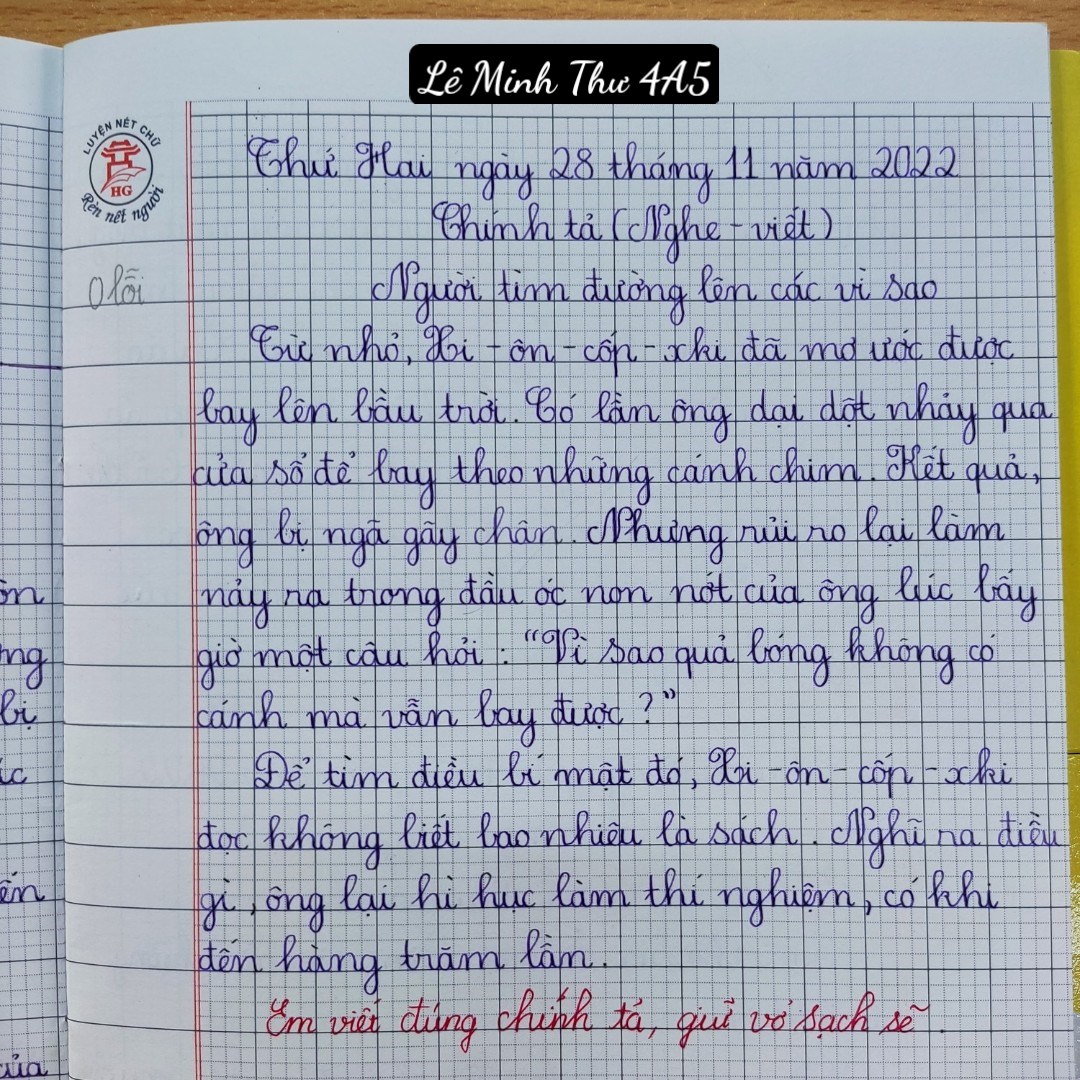 Lê Minh Thư 4A5
LUYỆN NÉT CHỮ
HG
Rèn nết người
Thứ Hai ngày 28 tháng 11 năm 2022
Chính tả (Nghe - viết)
0 lỗi
Người tìm đường lên các vì sao
Từ nhỏ, Xi - ôn - cốp - xki đã mơ ước được
bay lên bầu trời. Có lần ông dại dột nhảy qua
cửa sổ để bay theo những cánh chim. Kết quả,
ông bị ngã gãy chân. Nhưng rủi ro lại làm
nảy ra trong đầu óc non nớt của ông lúc bấy
giờ một câu hỏi : “Vì sao quả bóng không có
cánh mà vẫn bay được ?”
Để tìm điều bí mật đó, Xi - ôn - cốp - xki
đọc không biết bao nhiêu là sách. Nghĩ ra điều
gì, ông lại hì hục làm thí nghiệm, có khi
đến hàng trăm lần.
Em viết đúng chính tả, giữ vở sạch sẽ.
ôn
ng
bị
úc
ến
của